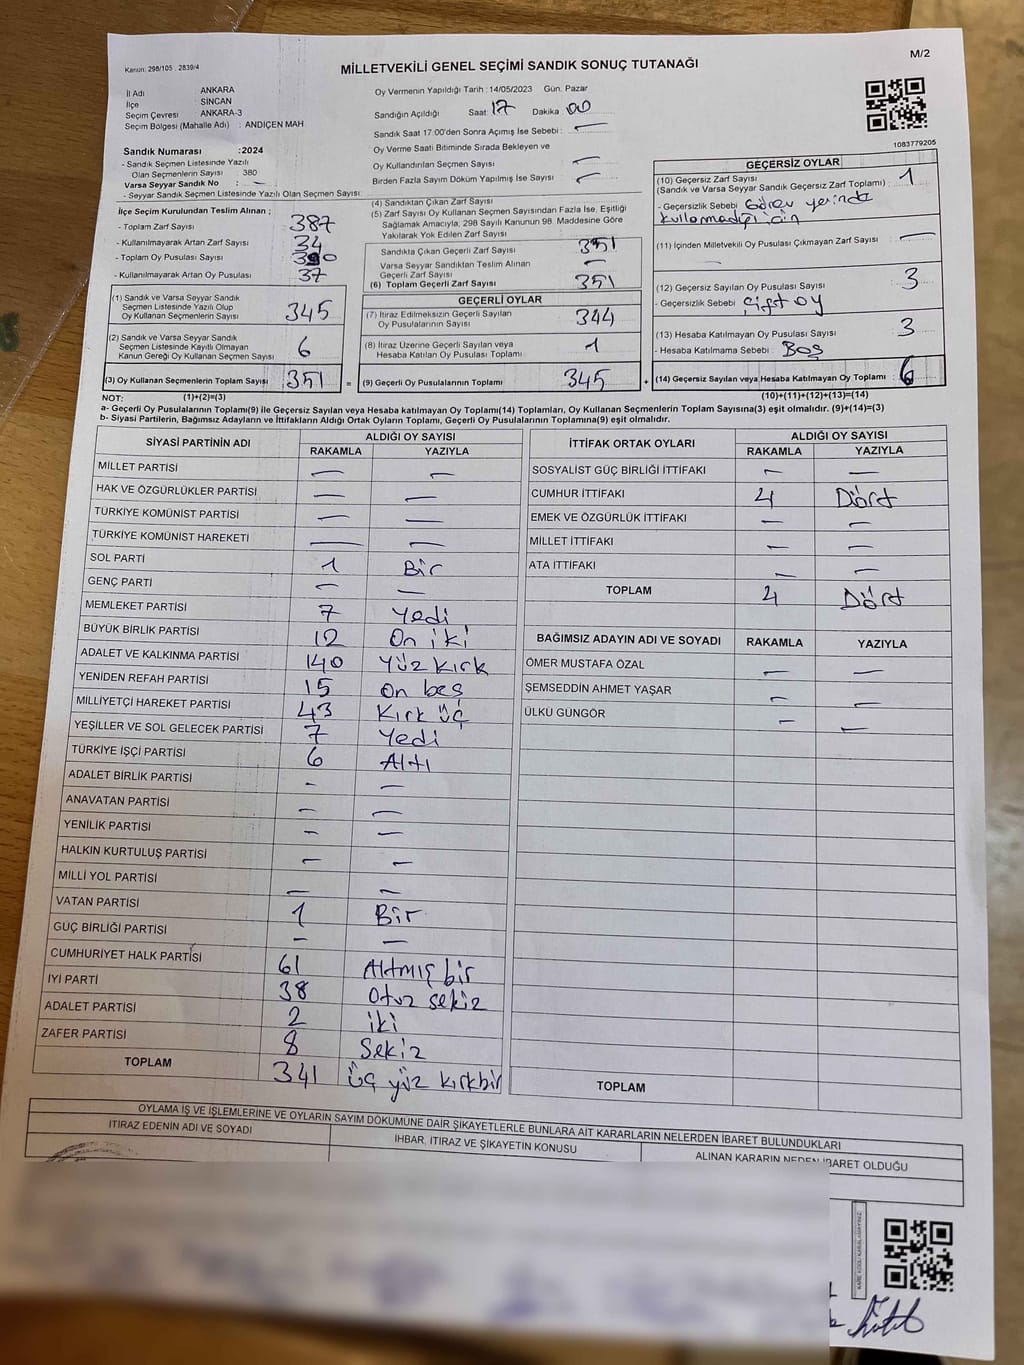 Kanun: 298/105 2839/4
MİLLETVEKİLİ GENEL SEÇİMİ SANDIK SONUÇ TUTANAĞI
M/2
İl Adı ANKARA
İlçe SİNCAN
Seçim Çevresi ANKARA-3
Seçim Bölgesi (Mahalle Adı) : ANDİÇEN MAH
Oy Vermenin Yapıldığı Tarih : 14/05/2023 Gün. Pazar
Sandığın Açıldığı Saat 17 Dakika 00
Sandık Saat 17:00'den Sonra Açımış İse Sebebi : —
Oy Verme Saati Bitiminde Sırada Bekleyen ve
Oy Kullandırılan Seçmen Sayısı —
Birden Fazla Sayım Döküm Yapılmış İse Sayısı —
1083779205
Sandık Numarası :2024
- Sandık Seçmen Listesinde Yazılı
Olan Seçmenlerin Sayısı 380
Varsa Seyyar Sandık No : —
- Seyyar Sandık Seçmen Listesinde Yazılı Olan Seçmen Sayısı:
İlçe Seçim Kurulundan Teslim Alınan ;
- Toplam Zarf Sayısı 387
- Kullanılmayarak Artan Zarf Sayısı 34
- Toplam Oy Pusulası Sayısı
- Kullanılmayarak Artan Oy Pusulası 37
(1) Sandık ve Varsa Seyyar Sandık
Seçmen Listesinde Yazılı Olup
Oy Kullanan Seçmenlerin Sayısı 345
(2) Sandık ve Varsa Seyyar Sandık
Seçmen Listesinde Kayıtlı Olmayan
Kanun Gereği Oy Kullanan Seçmen Sayısı 6
(3) Oy Kullanan Seçmenlerin Toplam Sayısı 351 =
(4) Sandıktan Çıkan Zarf Sayısı
(5) Zarf Sayısı Oy Kullanan Seçmen Sayısından Fazla İse, Eşitliği
Sağlamak Amacıyla; 298 Sayılı Kanunun 98. Maddesine Göre
Yakılarak Yok Edilen Zarf Sayısı
Sandıkta Çıkan Geçerli Zarf Sayısı 351
Varsa Seyyar Sandıktan Teslim Alınan
Geçerli Zarf Sayısı —
(6) Toplam Geçerli Zarf Sayısı 351
GEÇERLİ OYLAR
(7) İtiraz Edilmeksizin Geçerli Sayılan
Oy Pusulalarının Sayısı 344
(8) İtiraz Üzerine Geçerli Sayılan veya
Hesaba Katılan Oy Pusulası Toplamı 1
(9) Geçerli Oy Pusulalarının Toplamı 345 +
GEÇERSİZ OYLAR
(10) Geçersiz Zarf Sayısı
(Sandık ve Varsa Seyyar Sandık Geçersiz Zarf Toplamı) : 1
- Geçersizlik Sebebi Görev yerinde
kullanmadığı için
(11) İçinden Milletvekili Oy Pusulası Çıkmayan Zarf Sayısı : —
—
(12) Geçersiz Sayılan Oy Pusulası Sayısı 3
- Geçersizlik Sebebi Çift oy
(13) Hesaba Katılmayan Oy Pusulası Sayısı 3
- Hesaba Katılmama Sebebi : Boş
(14) Geçersiz Sayılan veya Hesaba Katılmayan Oy Toplamı : 6
NOT: (1)+(2)=(3) (10)+(11)+(12)+(13)=(14)
a- Geçerli Oy Pusulalarının Toplamı(9) ile Geçersiz Sayılan veya Hesaba katılmayan Oy Toplamı(14) Toplamları, Oy Kullanan Seçmenlerin Toplam Sayısına(3) eşit olmalıdır. (9)+(14)=(3)
b- Siyasi Partilerin, Bağımsız Adayların ve İttifakların Aldığı Ortak Oyların Toplamı, Geçerli Oy Pusulalarının Toplamına(9) eşit olmalıdır.
SİYASİ PARTİNİN ADI ALDIĞI OY SAYISI
RAKAMLA YAZIYLA
MİLLET PARTİSİ — —
HAK VE ÖZGÜRLÜKLER PARTİSİ — —
TÜRKİYE KOMÜNİST PARTİSİ — —
TÜRKİYE KOMÜNİST HAREKETİ — —
SOL PARTİ 1 Bir
GENÇ PARTİ — —
MEMLEKET PARTİSİ 7 Yedi
BÜYÜK BİRLİK PARTİSİ 12 On iki
ADALET VE KALKINMA PARTİSİ 140 Yüz kırk
YENİDEN REFAH PARTİSİ 15 On beş
MİLLİYETÇİ HAREKET PARTİSİ 43 Kırk üç
YEŞİLLER VE SOL GELECEK PARTİSİ 7 Yedi
TÜRKİYE İŞÇİ PARTİSİ 6 Altı
ADALET BİRLİK PARTİSİ - —
ANAVATAN PARTİSİ — —
YENİLİK PARTİSİ — —
HALKIN KURTULUŞ PARTİSİ — —
MİLLİ YOL PARTİSİ — —
VATAN PARTİSİ 1 Bir
GÜÇ BİRLİĞİ PARTİSİ — —
CUMHURİYET HALK PARTİSİ 61 Altmış bir
İYİ PARTİ 38 Otuz sekiz
ADALET PARTİSİ 2 iki
ZAFER PARTİSİ 8 Sekiz
TOPLAM 341 üç yüz kırkbir
İTTİFAK ORTAK OYLARI ALDIĞI OY SAYISI
RAKAMLA YAZIYLA
SOSYALİST GÜÇ BİRLİĞİ İTTİFAKI — —
CUMHUR İTTİFAKI 4 Dört
EMEK VE ÖZGÜRLÜK İTTİFAKI — —
MİLLET İTTİFAKI — —
ATA İTTİFAKI — —
TOPLAM 4 Dört
BAĞIMSIZ ADAYIN ADI VE SOYADI RAKAMLA YAZIYLA
ÖMER MUSTAFA ÖZAL — —
ŞEMSEDDİN AHMET YAŞAR — —
ÜLKÜ GÜNGÖR — —
TOPLAM
OYLAMA İŞ VE İŞLEMLERİNE VE OYLARIN SAYIM DÖKÜMÜNE DAİR ŞİKAYETLERLE BUNLARA AİT KARARLARIN NELERDEN İBARET BULUNDUKLARI
İTİRAZ EDENİN ADI VE SOYADI
İHBAR, İTİRAZ VE ŞİKAYETİN KONUSU
ALINAN KARARIN NEDEN İBARET OLDUĞU